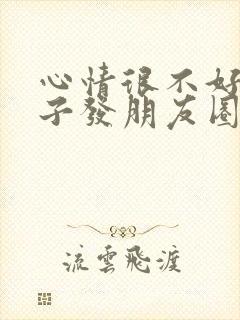 心情很不好
子發朋友圈
流雲飛渡